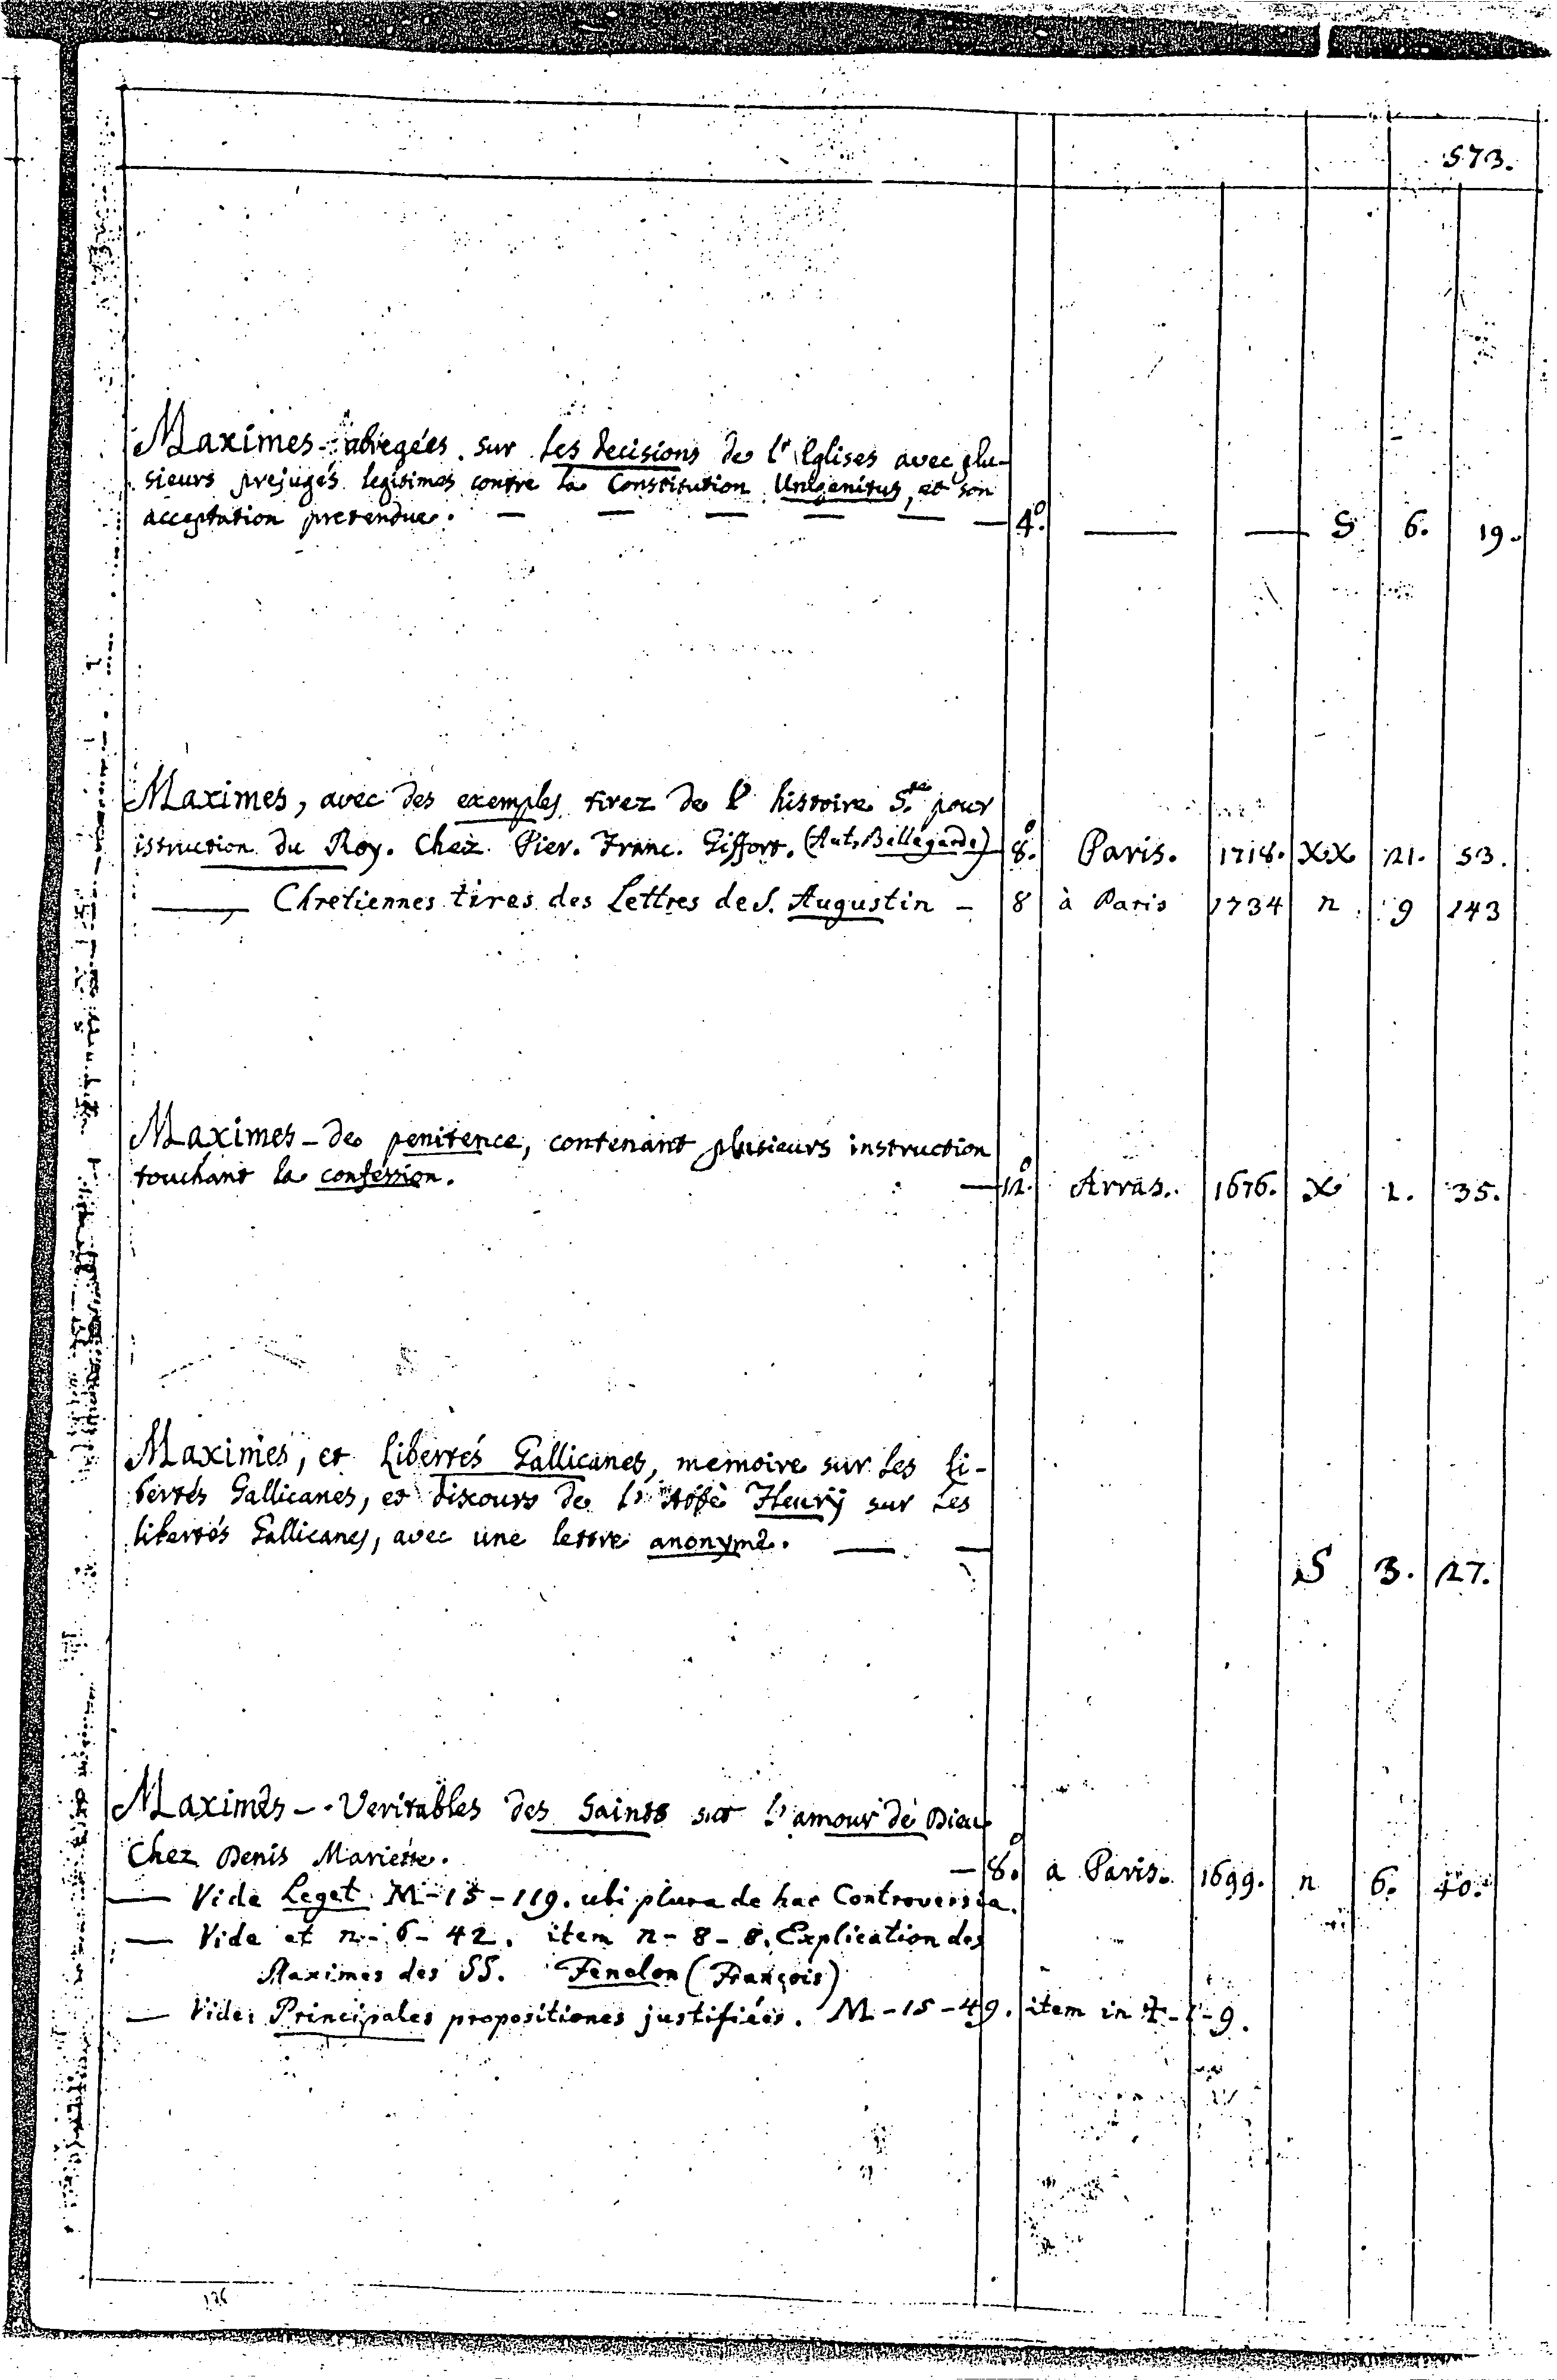 573.
Maximes - abregées sur les decisions de l'Eglises avec plu-
sieurs prejugés legitimes contre la Constitution Unigenitus, et son
acceptation pretendue. — — — — — — 4.° — — S 6. 19.
Maximes, avec des exemples tirez de l' histoire S.te pour
istruction du Roy. Chez Pier. Franc. Giffort. (Aut. Bellegarde) 8.° Paris. 1718. XX 21. 53.
—, Chretiennes tires des Lettres de S. Augustin - 8 à Paris 1734 n 9 143
Maximes - de penitence, contenant plusieurs instruction
touchant la confession. — 12.° Arras. 1676. X 2. 35.
Maximes, et Libertés Gallicanes, memoire sur les li-
bertés Gallicanes, et discours de l' Abbè Fleurÿ sur les
libertés Gallicanes, avec une lettre anonyme. — — S 3. 27.
Maximes - Veritables des Saints sur l'amour de Dieu
Chez Denis Mariette. — 8.° a Paris. 1699. n 6. 40.
— Vide Leget M-15-119. ubi plura de hac Controversia.
— Vide et n-6-42. item n-8-8. Explication des
Maximes des SS. Fenelon (François)
— Vide: Principales propositiones justifiées. M-15-49. item in - 9.